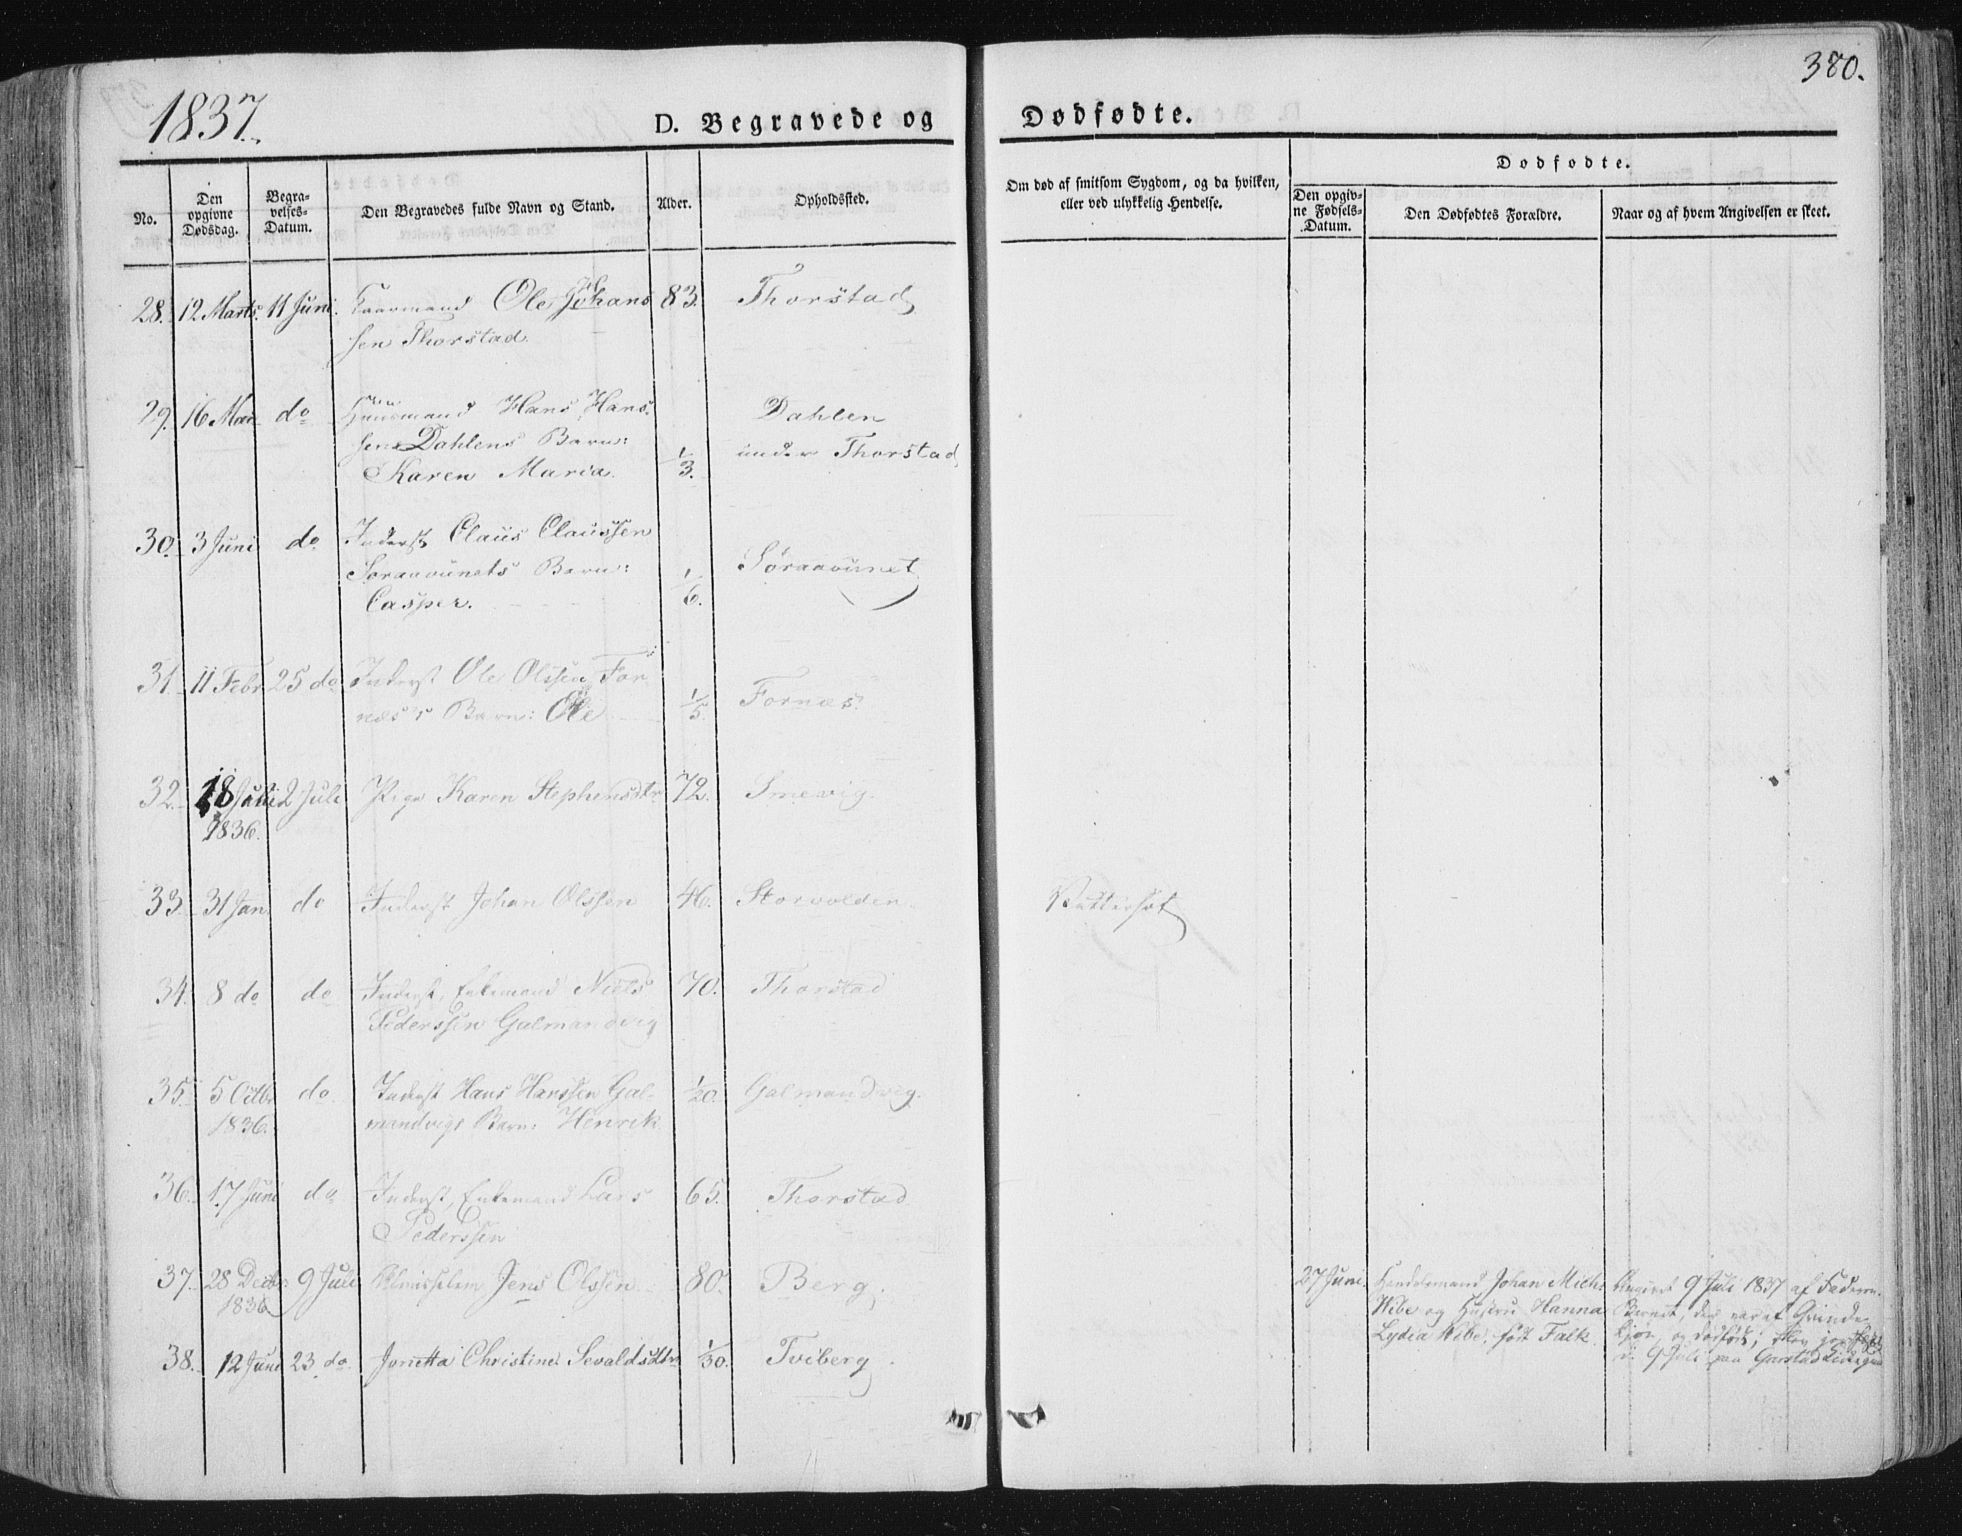 380.
1837.
D. Begravede og Dødfødte.
No.
Den opgivne Dødsdag.
Begravelses-Datum.
Den Begravedes fulde Navn og Stand.
Alder.
Opholdssted.
Om død af smitsom Sygdom, og da hvilken,
eller ved ulykkelig Hendelse.
Dødfødte.
Den opgivne Fødsels-Datum.
Den Dødfødtes Forældre.
Naar og af hvem Angivelsen er skeet.
28. 12 Marts. 11 Juni. Kaarmand Ole Johans 83. Thorstad
sen Thorstad.
29. 16 Mai do Huusmand Hans Hans Dahlen
sen Dahlens Barn: under Thorstad
Karen Maria. 1/3.
30. 3 Juni do Inderst Claus Claussen
Søraavunets Barn: Søraavunet
Casper. 1/6.
31. 11 Febr 25 do Inderst Ole Olssen For
næs's Barn: Ole 1/5. Fornæs.
32. 18 2 Juli Pige Karen Stephensdtr 72. Smevig.
1836.
33. 31 Jan. do Inderst Johan Olssen 46. Storvolden.
34. 8 do do Inderst, Enkemand Niels 70. Thorstad
Pederssen Galmandvig
35. 5 Octbr do Inderst Hans Hanssen Gal- 1/20. Galmandvig.
1836. mandvigs Barn: Henrik
36. 17 Juni do Inderst, Enkemand Lars 65. Thorstad
Pederssen
37. 28 Decbr 9 Juli Jens Olssen 80. Berg. 27 Juni. Handelsmand Johan Mich. Angivet 9 Juli 1837 af Faderen.
1836 Wibe og Hustru Hanna Barnet, der var af Qvinde
Lydia Wibe, født Falk kjøn, og dødfødt;
38. 12 Juni 23 do. Jonetta Christine Sevaldsdtr 1/30. Tviberg. 9 Juli paa